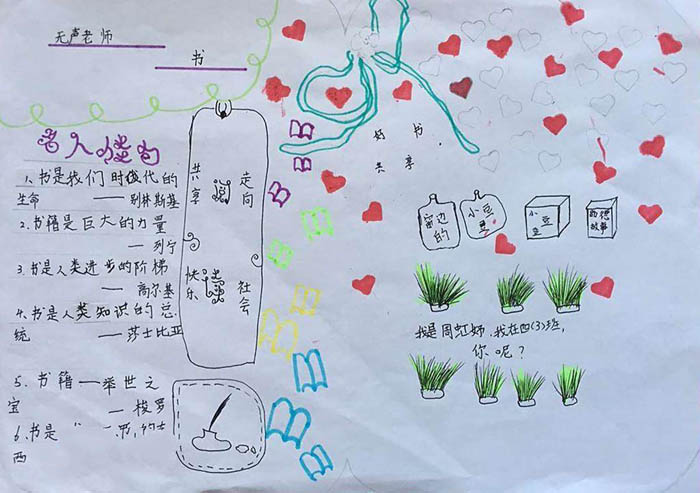 无声老师
书
名人
1、书是我们时代的
生命——别林斯基
2、书籍是巨大的力量
——列宁
3、书是人类进步的阶梯
——高尔基
4、书是人类知识的总
统——莎士比亚
5、书籍——举世之
宝——梭罗
6、书是
西
共享 走向
快乐 社会
好书，
共享
窗边的
小豆豆
小豆豆
故事
我是周虹娜，我在四(3)班，
你呢？